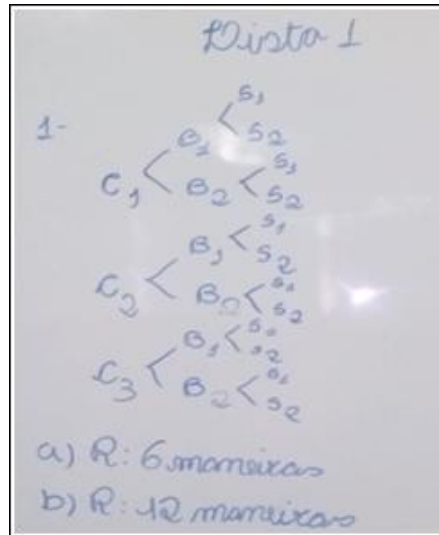 Lista 1
1-
C1 < B1 < S1
S2
B2 < S1
S2
C2 < B1 < S1
S2
B2 < S1
S2
C3 < B1 < S1
S2
B2 < S1
S2
a) R: 6 maneiras
b) R: 12 maneiras